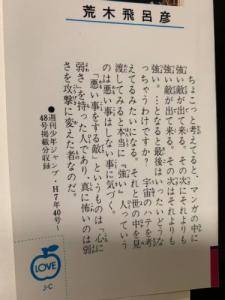 荒木飛呂彦
ちょこっと考えてると、マンガの中に
強い敵が出て来る。次にはそれよりも
強い敵が出て来る。その次はそれよりも
強い…となると最後はいったいどうな
っちゃうわけですか? 宇宙のハテを考
えてるみたいになる。それと世の中を見
渡してみると本当に「強い」人っていう
のは悪い事はしない事に気づく。
「悪い事をする敵」というものは「心に
弱さ」を持った人であり、真に怖いのは弱
さを攻撃に変えた者なのだ。
●週刊少年ジャンプ・H7年40号〜
48号掲載分収録
LOVE
J・C